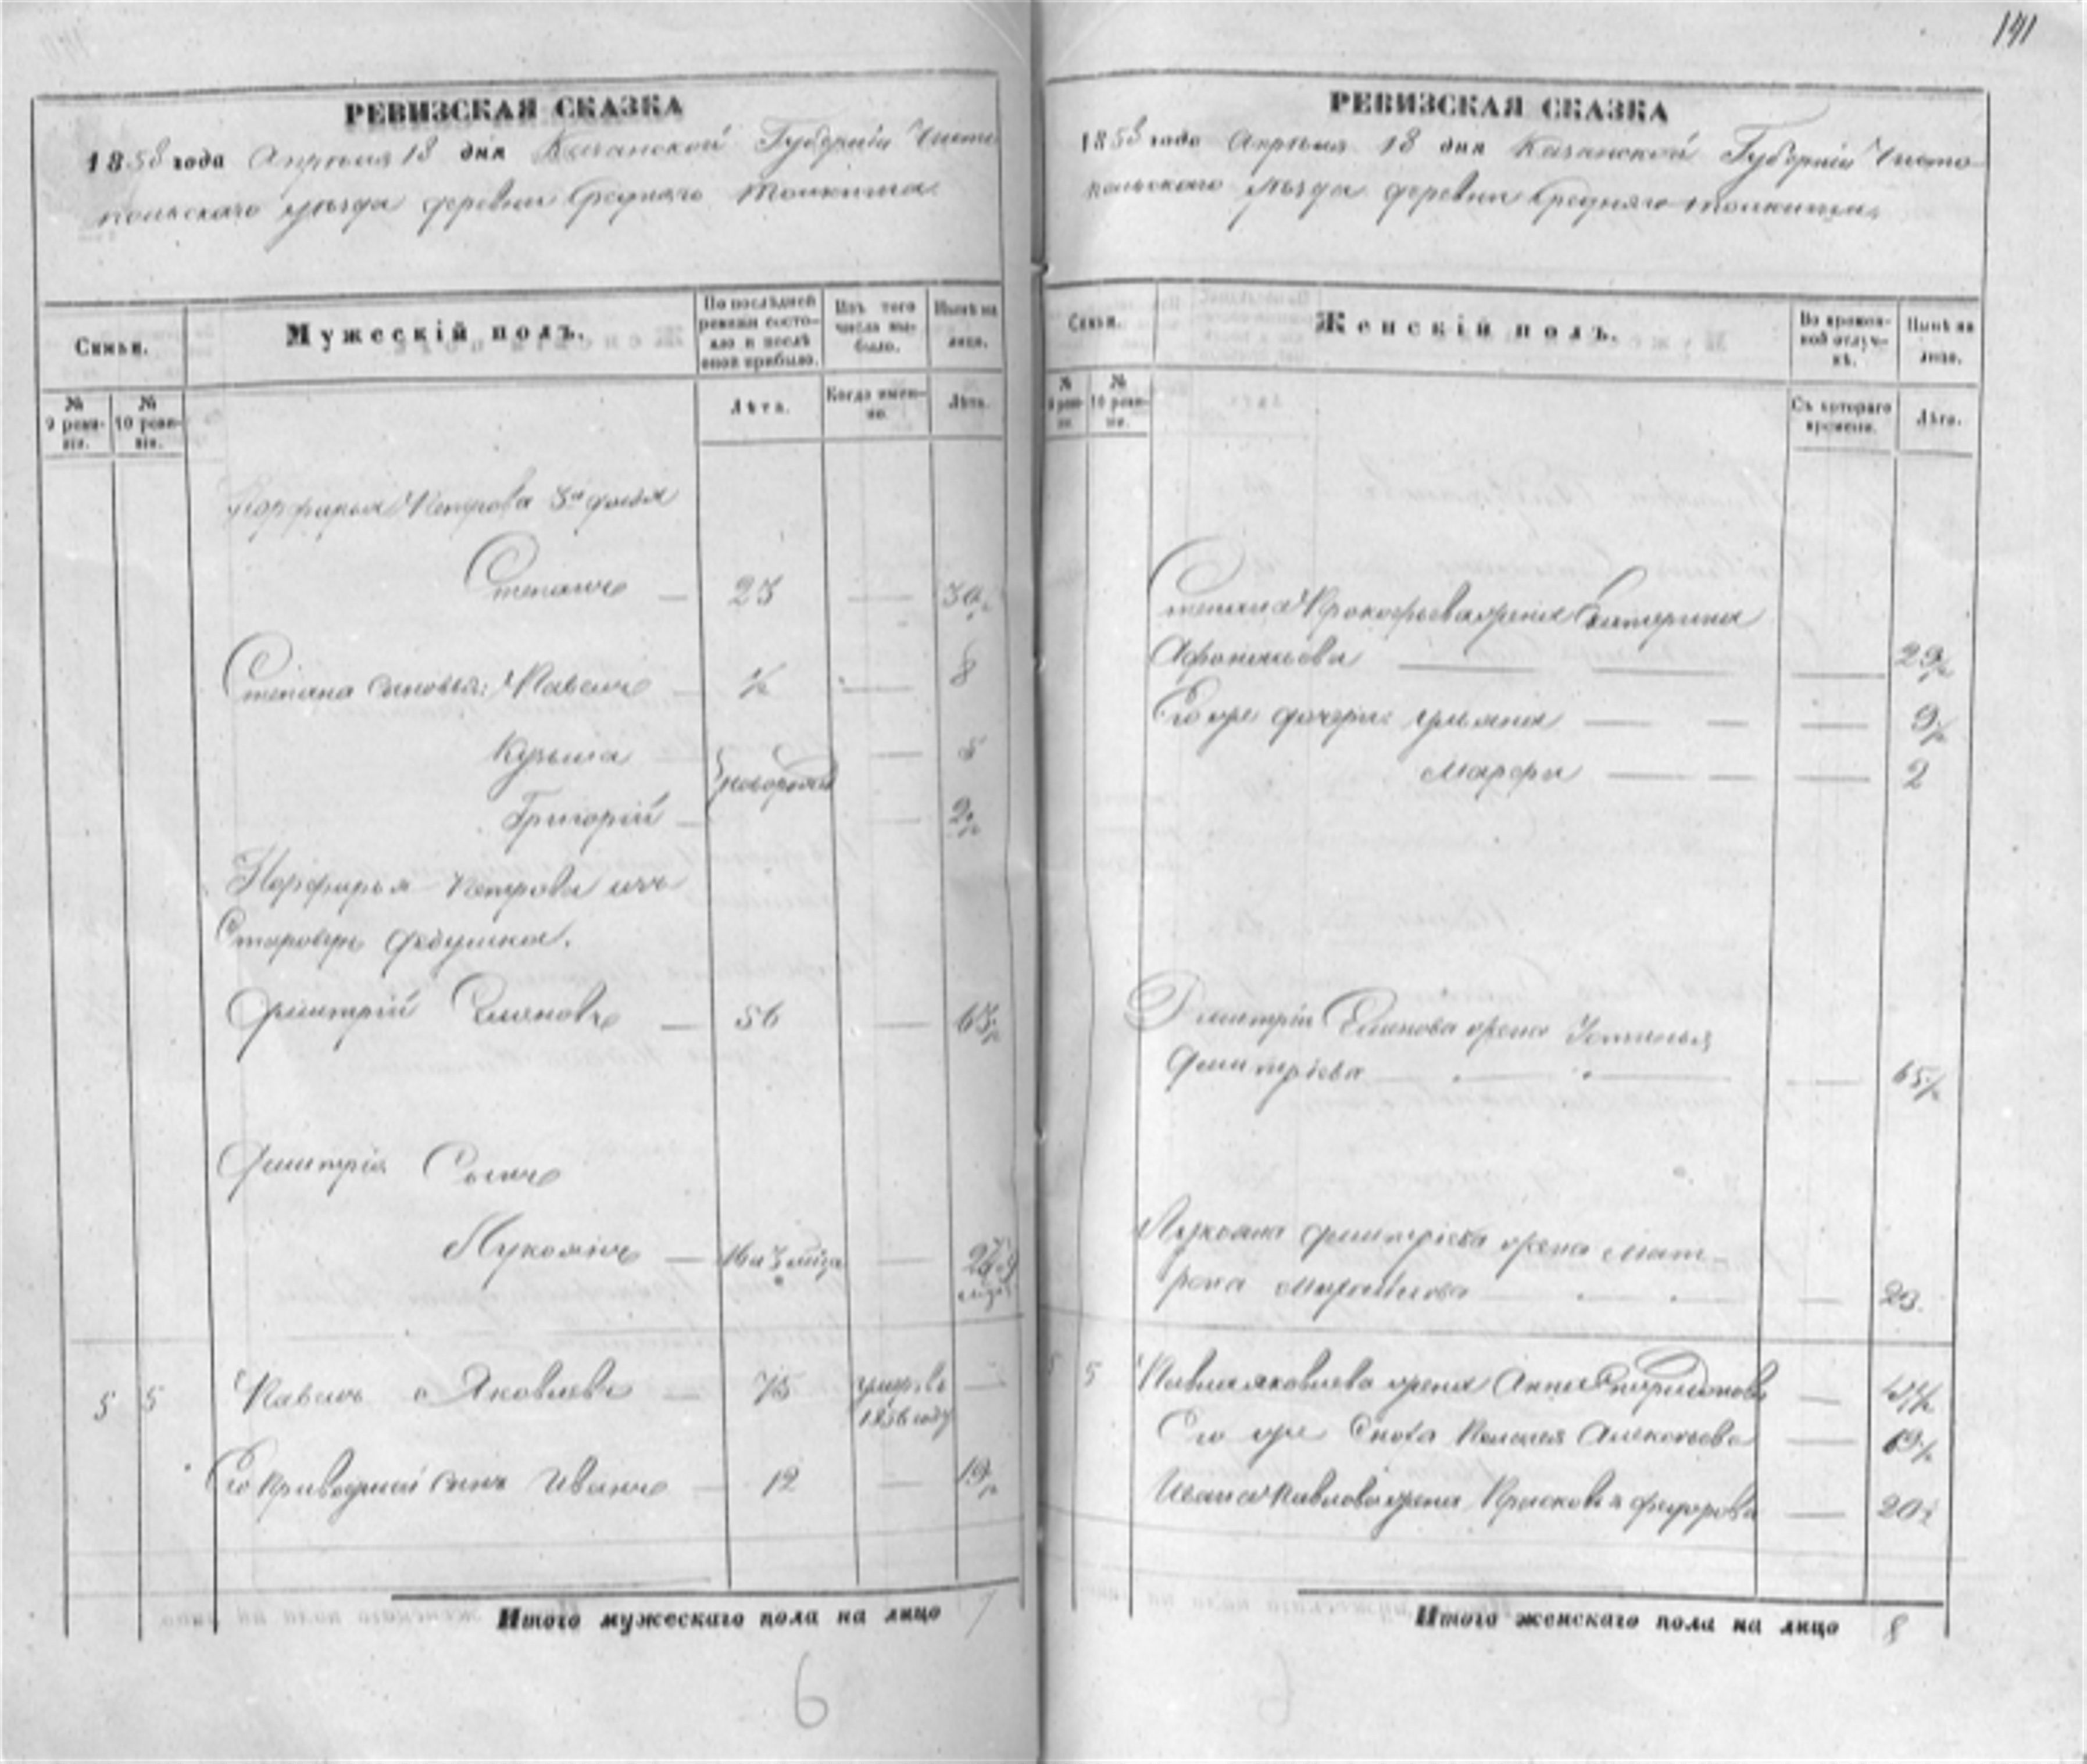 141
РЕВИЗСКАЯ СКАЗКА
1858 года Апреля 18 дня Казанской Губерніи Чисто
польскаго уѣзда деревни Средняго Толкиша
Семьи.
Мужескій полъ.
По послѣдней ревизіи состояло и послѣ оной прибыло.
Изъ того числа выбыло.
Нынѣ на лицо.
№ 9 ревизіи.
№ 10 ревизіи.
Лѣта.
Когда именно.
Лѣта.
Порфирья Петрова 3й
Степанъ — 23 — 30½
Степана сыновья: Павелъ — ½ — 8
Кузьма — 5
новорожд
Григорій — — 2½
Порфирья Петрова
Дмитрій — 56 — 63½
Дмитрія Сынъ
Лукоянъ — 16 и 3 — 
5 5 Павелъ Яковлевъ — 75 умеръ въ —
1856 году
Его Приводный сынъ Иванъ — 12 — 19½
Итого мужескаго пола на лицо 7
6
РЕВИЗСКАЯ СКАЗКА
1858 года Апреля 18 дня Казанской Губерніи Чисто-
польскаго уѣзда деревни Средняго Толкиша
Семьи.
Женскій полъ.
Во временной отлучкѣ.
Нынѣ на лицо.
№ 9 ревизіи.
№ 10 ревизіи.
Съ котораго времени.
Лѣта.
Степана жена Екатерина
Афонасьева — — — 29½
Его же дочери: Ульяна — — — 9½
Марфа — — — 2
Дмитрія жена Устинья
Дмитріева — — — 65½
Лукояна Дмитріева жена Мат-
рена — — 23
5 5 Павла Яковлева жена Анна Спиридонова —
Его же Сноха Пелагея — 
Ивана Павлова жена Прасковья Федорова — 20½
Итого женскаго пола на лицо 8